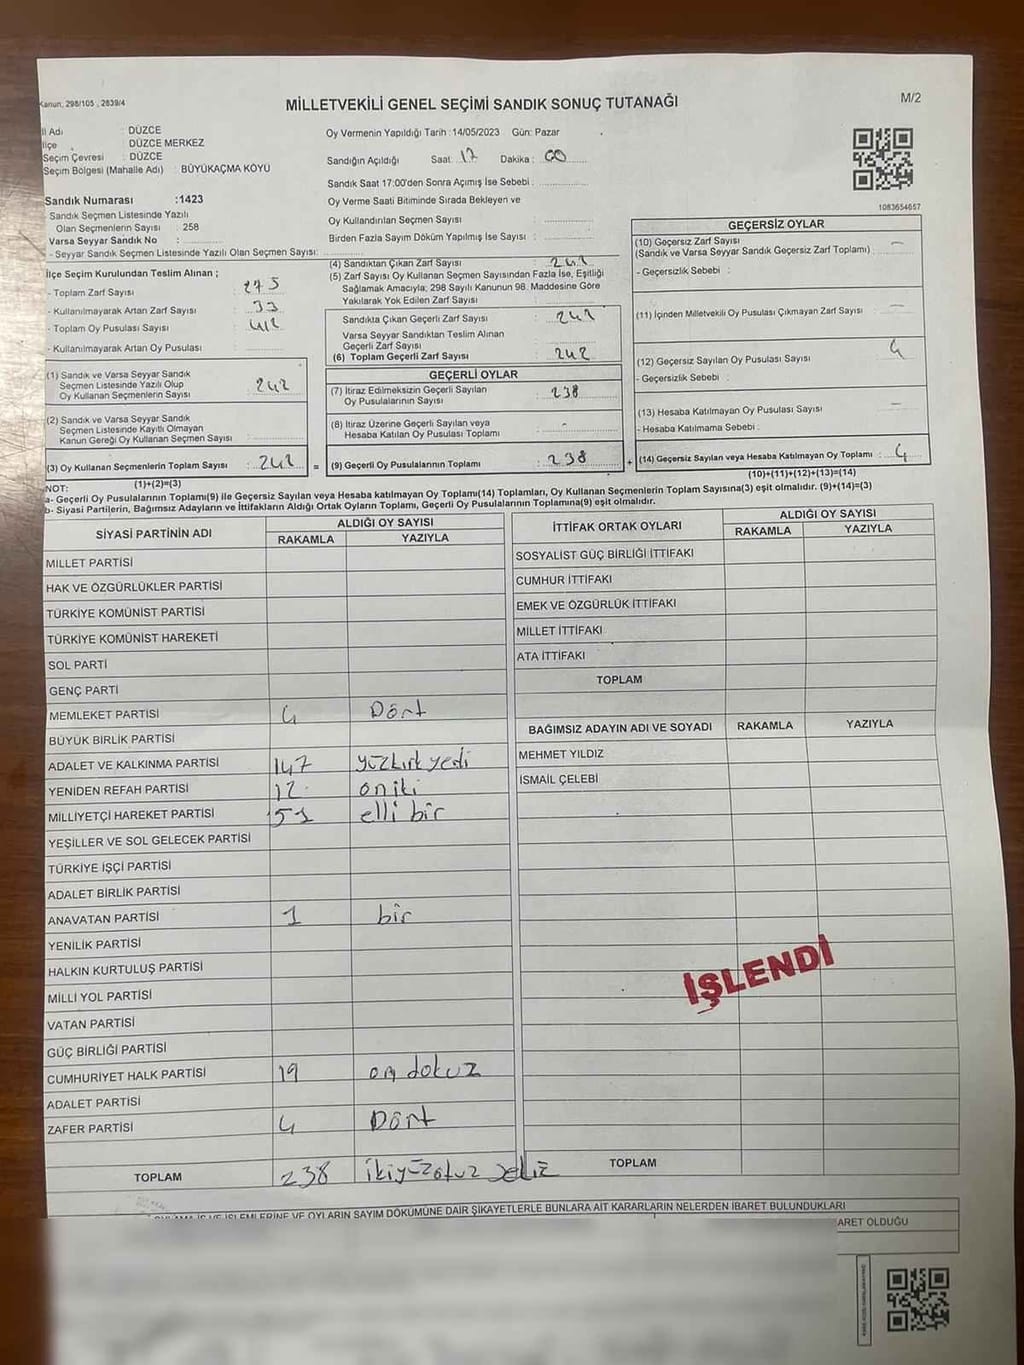 Kanun, 298/105 , 2839/4
MİLLETVEKİLİ GENEL SEÇİMİ SANDIK SONUÇ TUTANAĞI
M/2
İl Adı : DÜZCE
İlçe : DÜZCE MERKEZ
Seçim Çevresi : DÜZCE
Seçim Bölgesi (Mahalle Adı) : BÜYÜKAÇMA KÖYÜ
Oy Vermenin Yapıldığı Tarih :14/05/2023 Gün: Pazar
Sandığın Açıldığı Saat: 17 Dakika : 00
Sandık Saat 17:00'den Sonra Açımış İse Sebebi :
Oy Verme Saati Bitiminde Sırada Bekleyen ve
Oy Kullandırılan Seçmen Sayısı :
Birden Fazla Sayım Döküm Yapılmış İse Sayısı :
1083654657
Sandık Numarası :1423
Sandık Seçmen Listesinde Yazılı
Olan Seçmenlerin Sayısı : 258
Varsa Seyyar Sandık No :
- Seyyar Sandık Seçmen Listesinde Yazılı Olan Seçmen Sayısı:
İlçe Seçim Kurulundan Teslim Alınan ;
- Toplam Zarf Sayısı : 275
- Kullanılmayarak Artan Zarf Sayısı : 33
- Toplam Oy Pusulası Sayısı :
- Kullanılmayarak Artan Oy Pusulası :
(1) Sandık ve Varsa Seyyar Sandık
Seçmen Listesinde Yazılı Olup
Oy Kullanan Seçmenlerin Sayısı : 242
(2) Sandık ve Varsa Seyyar Sandık
Seçmen Listesinde Kayıtlı Olmayan
Kanun Gereği Oy Kullanan Seçmen Sayısı :
(3) Oy Kullanan Seçmenlerin Toplam Sayısı : 242
(1)+(2)=(3)
(4) Sandıktan Çıkan Zarf Sayısı : 242
(5) Zarf Sayısı Oy Kullanan Seçmen Sayısından Fazla İse, Eşitliği
Sağlamak Amacıyla; 298 Sayılı Kanunun 98. Maddesine Göre
Yakılarak Yok Edilen Zarf Sayısı :
Sandıkta Çıkan Geçerli Zarf Sayısı : 242
Varsa Seyyar Sandıktan Teslim Alınan
Geçerli Zarf Sayısı :
(6) Toplam Geçerli Zarf Sayısı : 242
GEÇERLİ OYLAR
(7) İtiraz Edilmeksizin Geçerli Sayılan
Oy Pusulalarının Sayısı : 238
(8) İtiraz Üzerine Geçerli Sayılan veya
Hesaba Katılan Oy Pusulası Toplamı : -
= (9) Geçerli Oy Pusulalarının Toplamı : 238
GEÇERSİZ OYLAR
(10) Geçersiz Zarf Sayısı : —
(Sandık ve Varsa Seyyar Sandık Geçersiz Zarf Toplamı)
- Geçersizlik Sebebi :
(11) İçinden Milletvekili Oy Pusulası Çıkmayan Zarf Sayısı : —
(12) Geçersiz Sayılan Oy Pusulası Sayısı : 4
- Geçersizlik Sebebi :
(13) Hesaba Katılmayan Oy Pusulası Sayısı : —
- Hesaba Katılmama Sebebi :
+ (14) Geçersiz Sayılan veya Hesaba Katılmayan Oy Toplamı : 4
(10)+(11)+(12)+(13)=(14)
NOT:
a- Geçerli Oy Pusulalarının Toplamı(9) ile Geçersiz Sayılan veya Hesaba katılmayan Oy Toplamı(14) Toplamları, Oy Kullanan Seçmenlerin Toplam Sayısına(3) eşit olmalıdır. (9)+(14)=(3)
b- Siyasi Partilerin, Bağımsız Adayların ve İttifakların Aldığı Ortak Oyların Toplamı, Geçerli Oy Pusulalarının Toplamına(9) eşit olmalıdır.
SİYASİ PARTİNİN ADI ALDIĞI OY SAYISI
RAKAMLA YAZIYLA
MİLLET PARTİSİ
HAK VE ÖZGÜRLÜKLER PARTİSİ
TÜRKİYE KOMÜNİST PARTİSİ
TÜRKİYE KOMÜNİST HAREKETİ
SOL PARTİ
GENÇ PARTİ
MEMLEKET PARTİSİ 4 Dört
BÜYÜK BİRLİK PARTİSİ
ADALET VE KALKINMA PARTİSİ 147 yüzkırk yedi
YENİDEN REFAH PARTİSİ 12 oniki
MİLLİYETÇİ HAREKET PARTİSİ 51 elli bir
YEŞİLLER VE SOL GELECEK PARTİSİ
TÜRKİYE İŞÇİ PARTİSİ
ADALET BİRLİK PARTİSİ
ANAVATAN PARTİSİ 1 bir
YENİLİK PARTİSİ
HALKIN KURTULUŞ PARTİSİ
MİLLİ YOL PARTİSİ
VATAN PARTİSİ
GÜÇ BİRLİĞİ PARTİSİ
CUMHURİYET HALK PARTİSİ 19 on dokuz
ADALET PARTİSİ
ZAFER PARTİSİ 4 Dört
TOPLAM 238 ikiyüzotuz sekiz
İTTİFAK ORTAK OYLARI ALDIĞI OY SAYISI
RAKAMLA YAZIYLA
SOSYALİST GÜÇ BİRLİĞİ İTTİFAKI
CUMHUR İTTİFAKI
EMEK VE ÖZGÜRLÜK İTTİFAKI
MİLLET İTTİFAKI
ATA İTTİFAKI
TOPLAM
BAĞIMSIZ ADAYIN ADI VE SOYADI RAKAMLA YAZIYLA
MEHMET YILDIZ
İSMAİL ÇELEBİ
İŞLENDİ
TOPLAM
İŞ VE İŞLEMLERİNE VE OYLARIN SAYIM DÖKÜMÜNE DAİR ŞİKAYETLERLE BUNLARA AİT KARARLARIN NELERDEN İBARET BULUNDUKLARI
ARET OLDUĞU